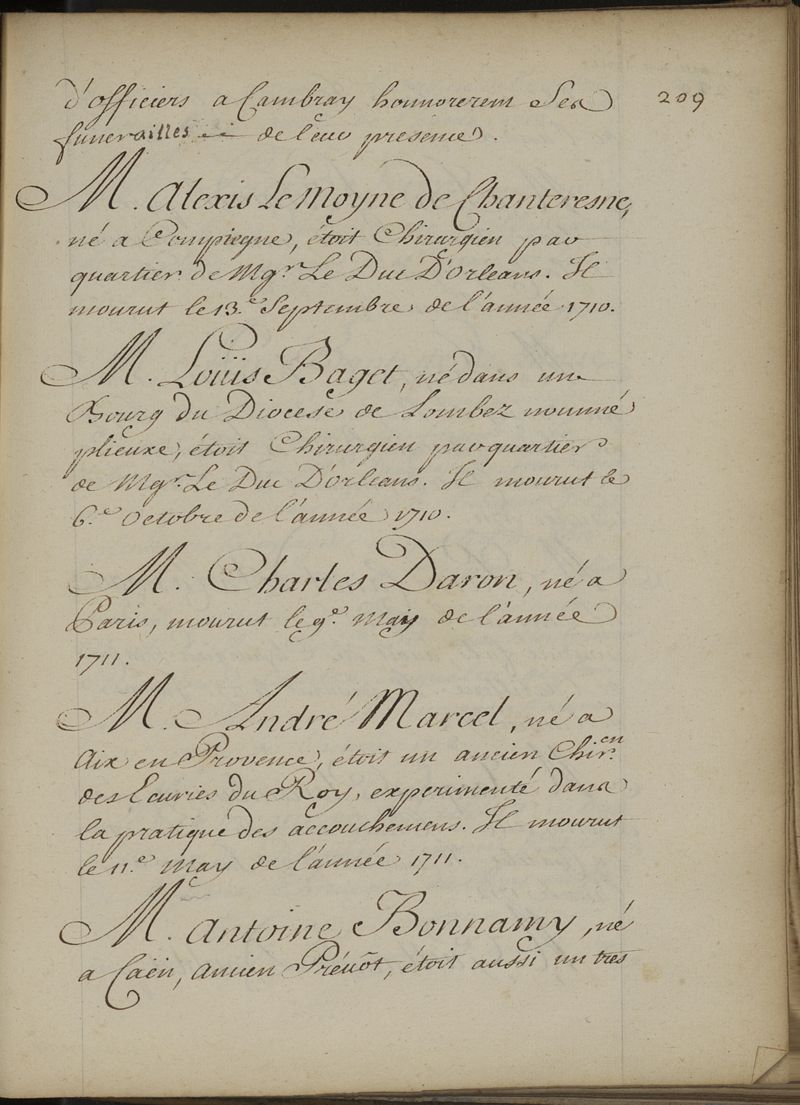 209
d'officiers a Cambray honnorerent Ses
funerailles de leur presence.
M. Alexis Le Moyne de Chanteresne,
né a Compiegne, étoit Chirurgien par
quartier de Mgr. Le Duc D'Orleans. Il
mourut le 13.e Septembre de l'année 1710.
M. Loüis Baget, né dans un
Bourg du Diocese de Lombez nommé
plieuxe, étoit Chirurgien par quartier
de Mgr. Le Duc D'Orleans. Il mourut le
6.e Octobre de l'année 1710.
M. Charles Daron, né a
Paris, mourut le 9.e May de l'année
1711.
M. André Marcel, né a
Aix en Provence, étoit un ancien Chir.en
des Ecuries du Roy, experimenté dans
la pratique des accouchemens. Il mourut
le 11.e May de l'année 1711.
M. Antoine Bonnamy, né
a Caën, ancien Prévôt, étoit aussi un tres